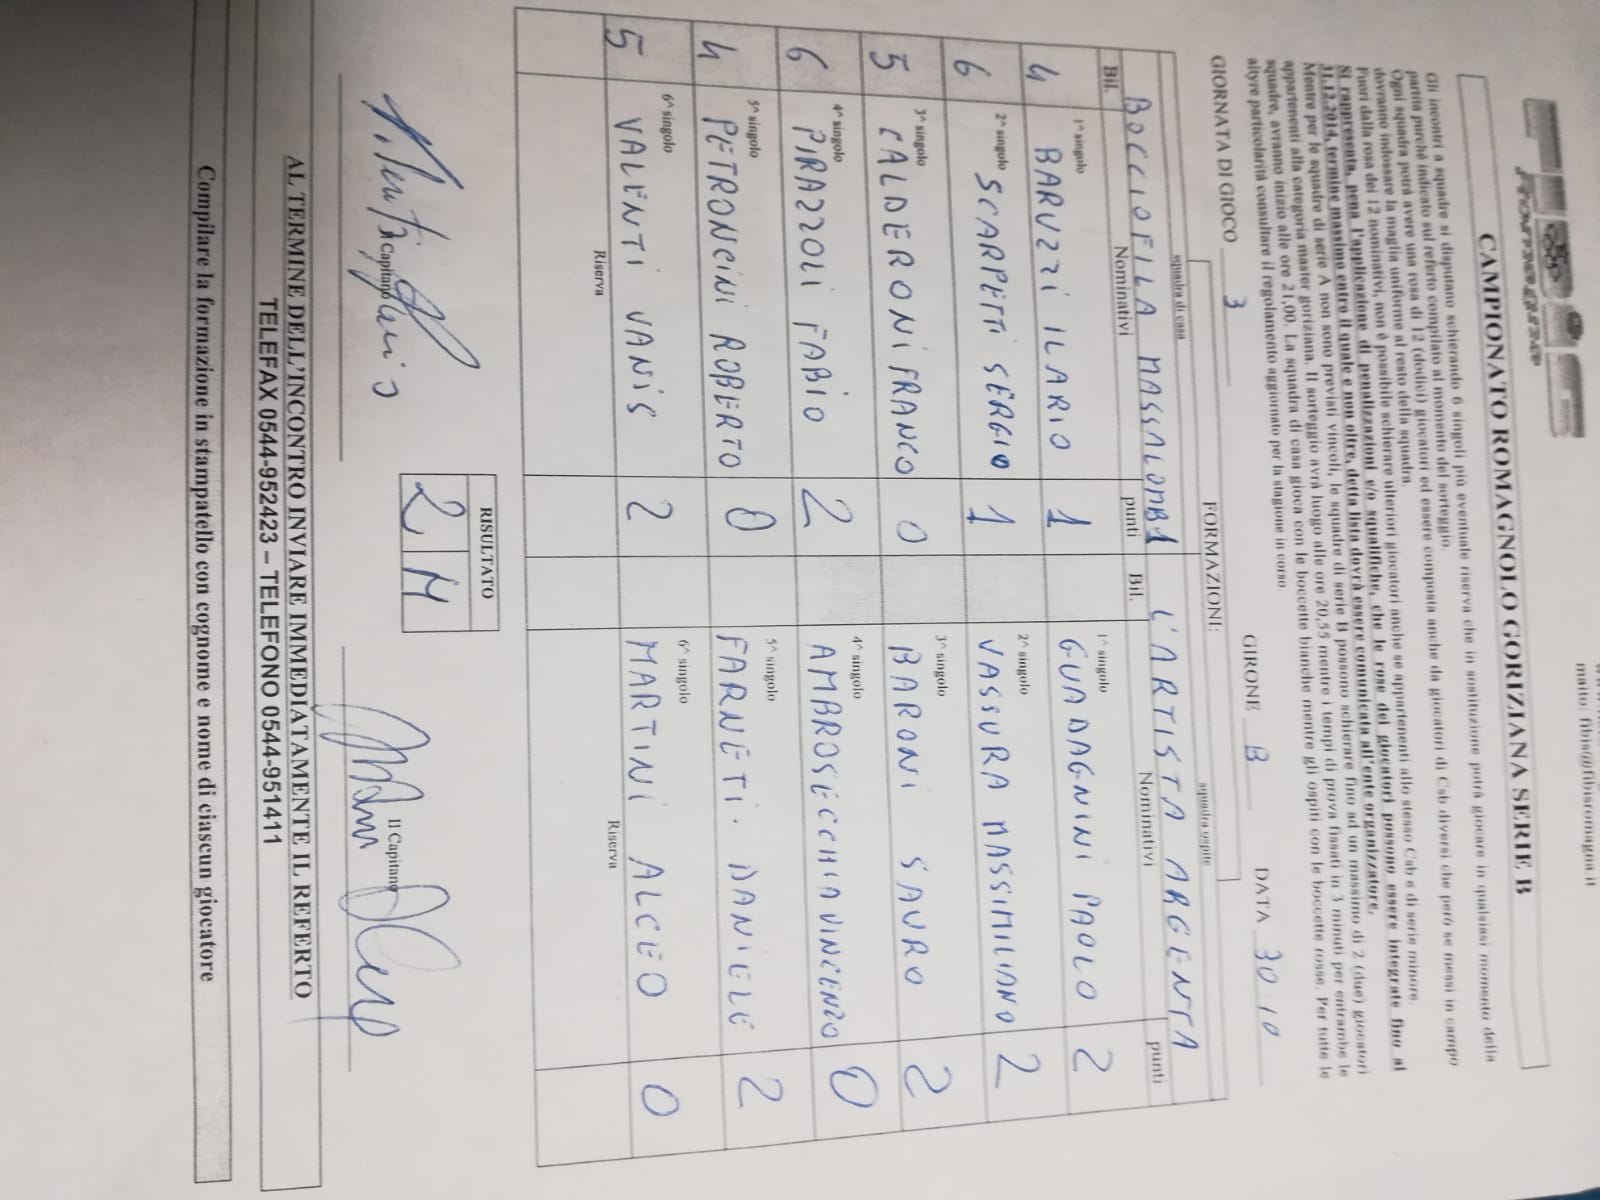 mailto: fibis@fibisromagna.it
CAMPIONATO ROMAGNOLO GORIZIANA SERIE B
Gli incontri a squadre si disputano schierando 6 singoli più eventuale riserva che in sostituzione potrà giocare in qualsiasi momento della
partita purché indicato sul referto compilato al momento del sorteggio.
Ogni squadra potrà avere una rosa di 12 (dodici) giocatori ed essere composta anche da giocatori di Csb diversi che però se messi in campo
dovranno indossare la maglia uniforme al resto della squadra.
Fuori dalla rosa dei 12 nominativi, non è possibile schierare ulteriori giocatori anche se appartenenti allo stesso Csb e di serie minore.
Si rappresenta, pena l'applicazione di penalizzazioni e/o squalifiche, che le rose dei giocatori possono essere integrate fino al
31.12.2014, termine massimo entro il quale e non oltre, detta lista dovrà essere comunicata all'ente organizzatore.
Mentre per le squadre di serie A non sono previsti vincoli, le squadre di serie B possono schierare fino ad un massimo di 2 (due) giocatori
appartenenti alla categoria master goriziana. Il sorteggio avrà luogo alle ore 20,55 mentre i tempi di prova fissati in 3 minuti per entrambe le
squadre, avranno inizio alle ore 21,00. La squadra di casa gioca con le boccette bianche mentre gli ospiti con le boccette rosse. Per tutte le
altyre particolarità consultare il regolamento aggiornato per la stagione in corso.
GIORNATA DI GIOCO 3 GIRONE B DATA 30.10
FORMAZIONI:
squadra di casa squadra ospite
BOCCIOFILA MASSALOMB1 L'ARTISTA ARGENTA
Bil. Nominativi punti Bil. Nominativi punti
4 1^ singolo BARUZZI ILARIO 1 1^ singolo GUADAGNINI PAOLO 2
6 2^ singolo SCARPETTI SERGIO 1 2^ singolo VASSURA MASSIMILIANO 2
5 3^ singolo CALDERONI FRANCO 0 3^ singolo BARONI SAURO 2
6 4^ singolo PIRAZZOLI FABIO 2 4^ singolo AMBROSECCHIA VINCENZO 0
4 5^ singolo PETRONCINI ROBERTO 0 5^ singolo FARNETI DANIELE 2
5 6^ singolo VALENTI VANIS 2 6^ singolo MARTINI ALCEO 0
Riserva Riserva
RISULTATO
2 4
Il Capitano Il Capitano
AL TERMINE DELL'INCONTRO INVIARE IMMEDIATAMENTE IL REFERTO
TELEFAX 0544-952423 – TELEFONO 0544-951411
Compilare la formazione in stampatello con cognome e nome di ciascun giocatore